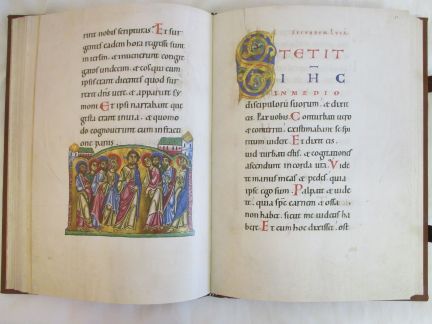 runt nobis scripturas. Et sur
gentes eadem hora regressi sunt
in ierłm. & inuenerunt congre
gatos undecim. & eos qui cum
ipsis erant dicentes quod sur
rexit dns uere. & apparuit sy
moni. Et ipsi narrabant que
gesta erant in uia. & quomo
do cognouerunt eum in fracti
one panis.
Secundum Luca.
STETIT
IHC
IN MEDIO
discipuloru suorum. & dixit
eis. Pax uobis. Conturbati uero
& conterriti. existimabant se spi
ritum uidere. Et dixit eis.
uid turbati estis. & cogitationes
ascendunt in corda ura. Vide
te manus meas & pedes. quia
ipse ego sum. Palpate & uide
te. quia sps carnem & ossa
non habet. sicut me uidetis ha
bere. Et cum hoc dixisset. ost